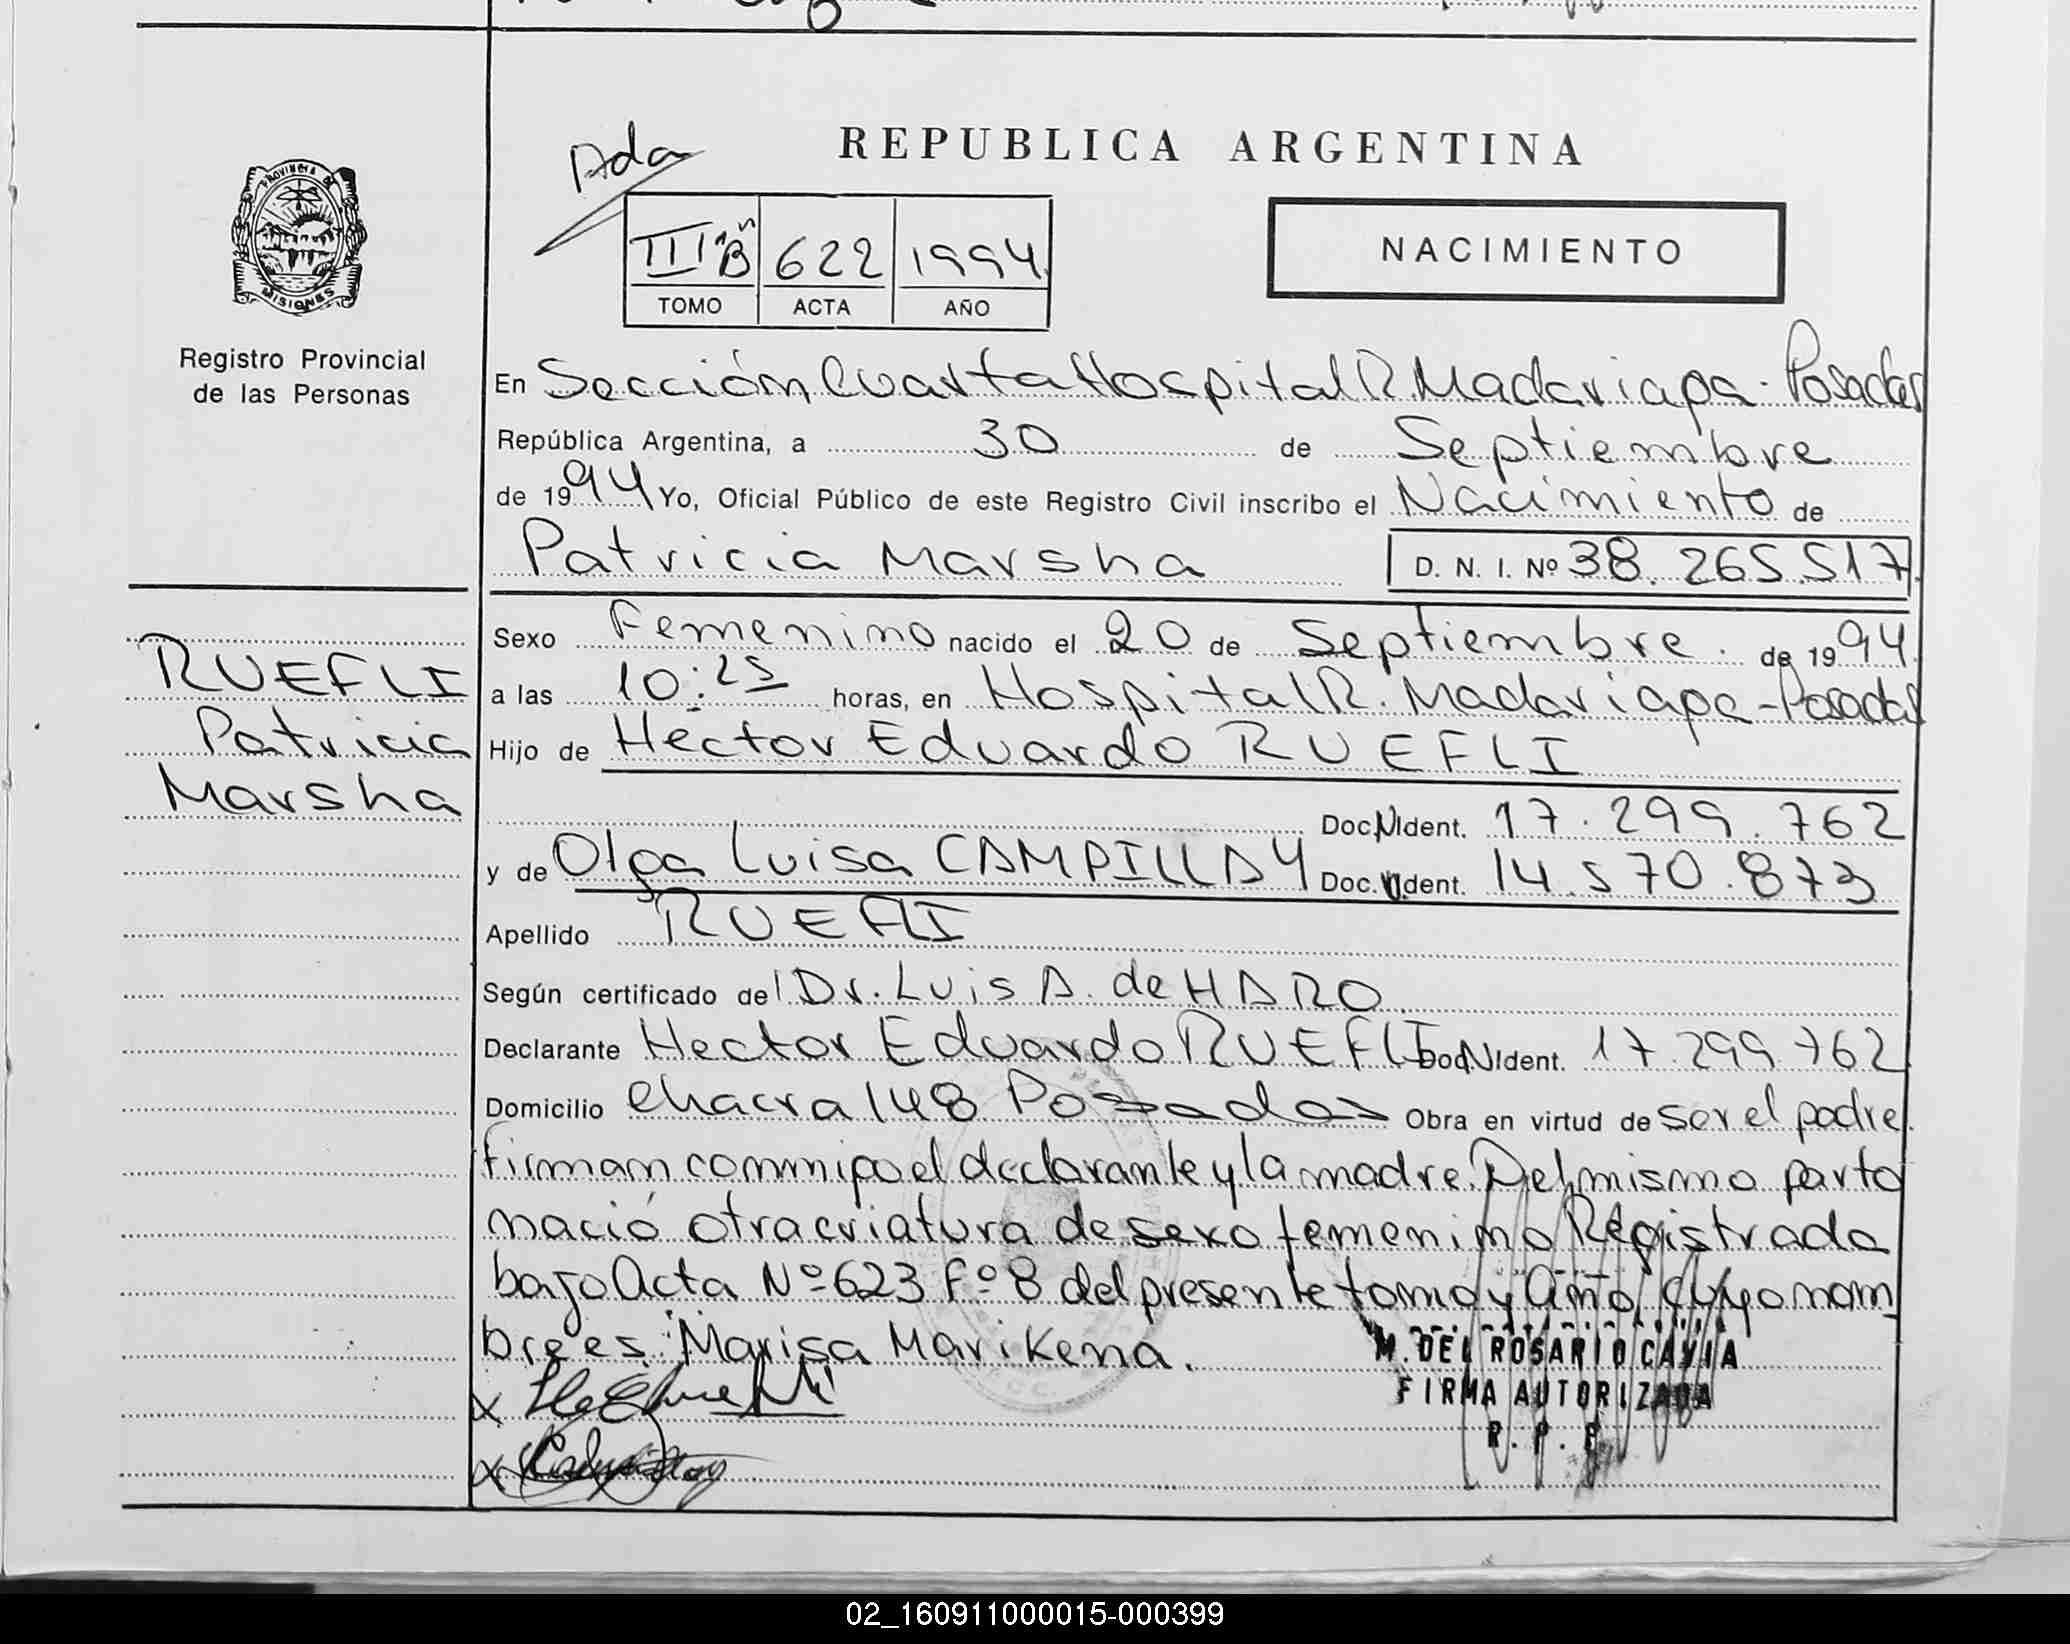 Ada
REPUBLICA ARGENTINA
III "B" 622 1994.
TOMO ACTA AÑO
NACIMIENTO
PROVINCIA DE
MISIONES
Registro Provincial
de las Personas
En Sección Cuarta Hospital R. Madariaga - Posadas
República Argentina, a 30 de Septiembre
de 1994 Yo, Oficial Público de este Registro Civil inscribo el Nacimiento de
Patricia Marsha D. N. I. Nº 38.265.517
Sexo Femenino nacido el 20 de Septiembre. de 1994.
a las 10:25 horas, en Hospital R. Madariaga - Posadas
Hijo de Hector Eduardo RUEFLI
Doc.N.Ident. 17.299.762
y de Olga Luisa CAMPILLAY Doc.N.Ident. 14.570.873
Apellido RUEFLI
Según certificado del Dr. Luis A. de HARO
Declarante Hector Eduardo RUEFLI Doc.N.Ident. 17.299.762
Domicilio Chacra 148 Posadas Obra en virtud de ser el padre.
firman conmigo el declarante y la madre. Del mismo parto
nació otra criatura de sexo femenino Registrada
bajo Acta Nº 623 Fº 8 del presente tomo y Año, cuyo nom
bre es: Marisa Marikena.
RUEFLI
Patricia
Marsha
M. DEL ROSARIO CAVIA
FIRMA AUTORIZADA
R. P. P.
02_160911000015-000399